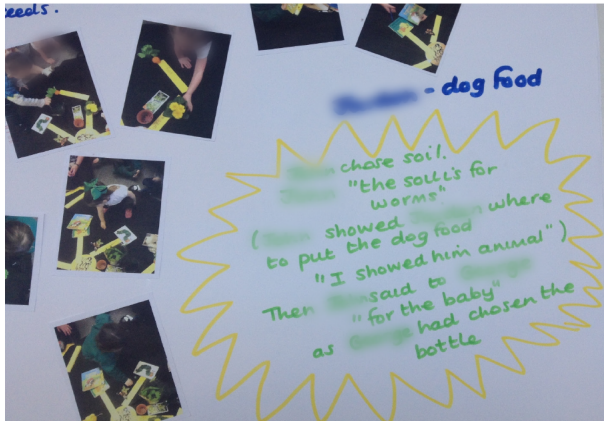 eeds.
- dog food
chose soil.
"the soil is for
worms"
( showed where
to put the dog food
"I showed him animal")
Then said to
"for the baby"
as had chosen the
bottle